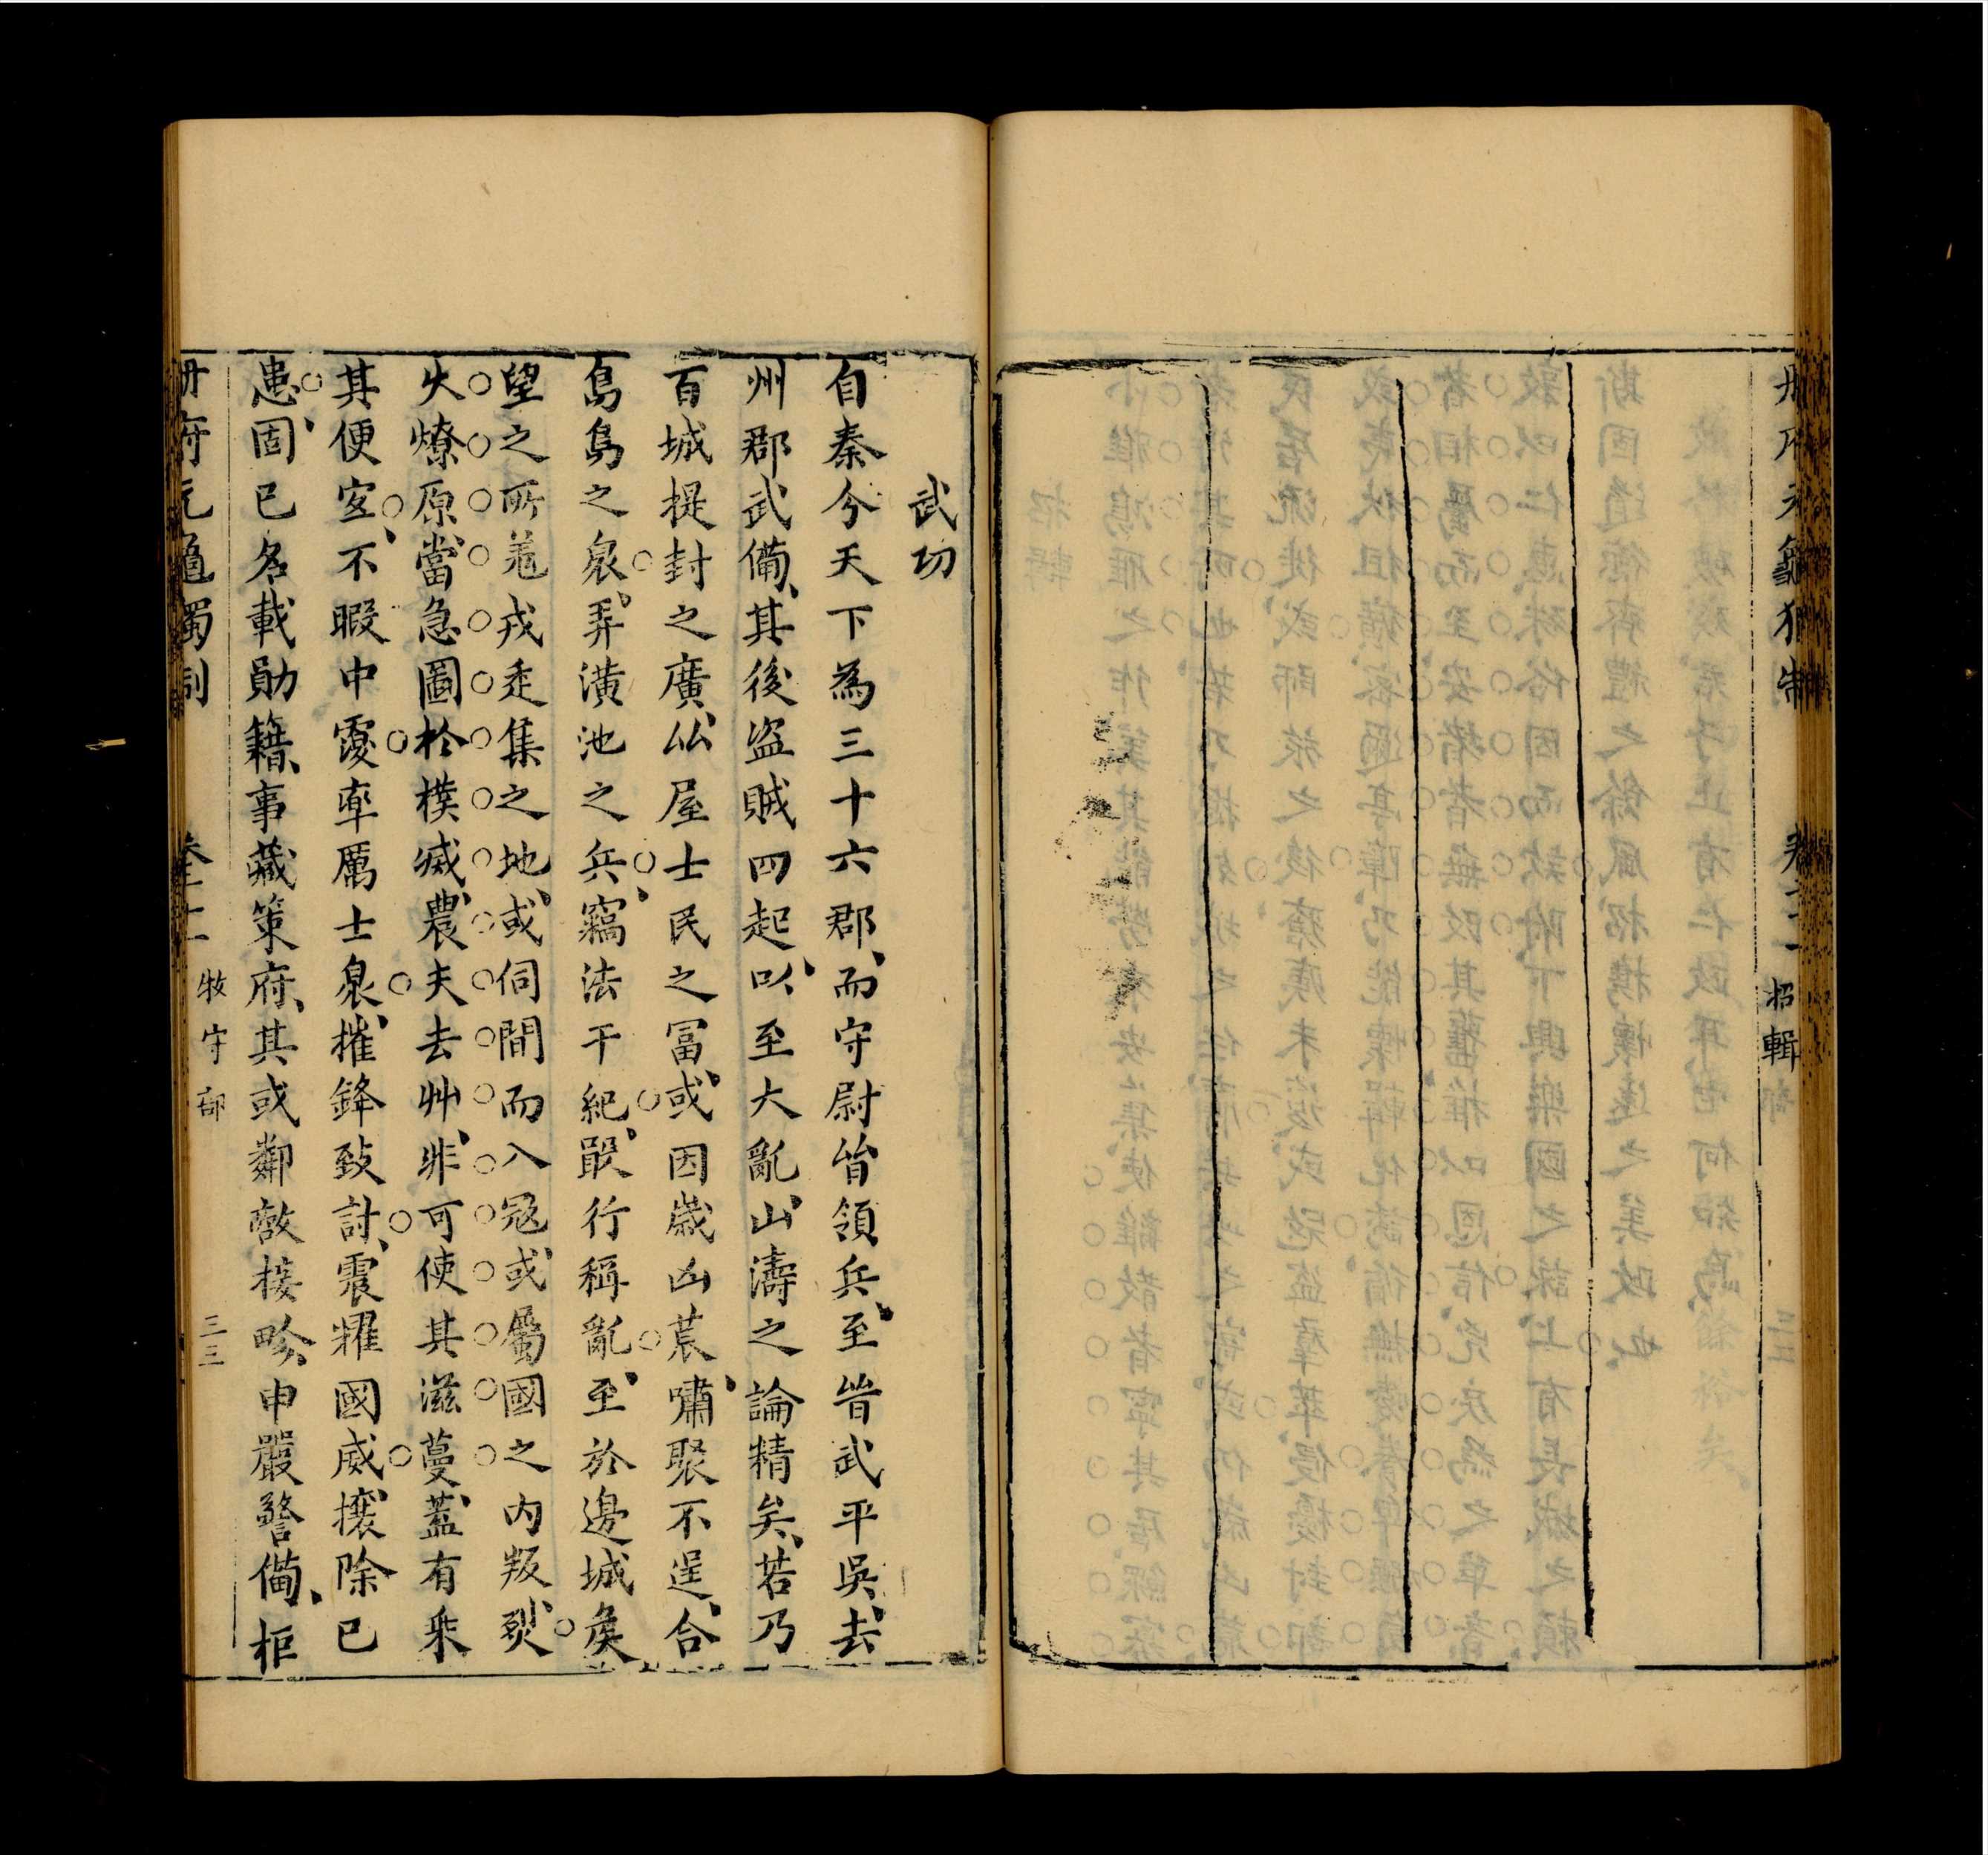 册府元龜獨制 卷十二 招輯
武功
自秦今天下為三十六郡而守尉皆領兵至晉武平吳去
州郡武備其後盜賊四起以至大亂山濤之論精矣若乃
百城提封之廣比屋士民之冨或因嵗凶荒嘯聚不逞合
島島之衆弄潢池之兵竊法干紀嚴行稱亂至於邊城矦
望之所羗戎走集之地或伺間而入冦或屬國之内叛烈
火燎原當急圖於撲滅農夫去艸非可使其滋蔓蓋有乘
其便宜不暇中覆率厲士衆摧鋒致討震耀國威攘除已
患固已名載勛籍事藏策府其或鄰敵接畛申嚴警備拒
册府元龜獨制 卷十二 牧守部 三三